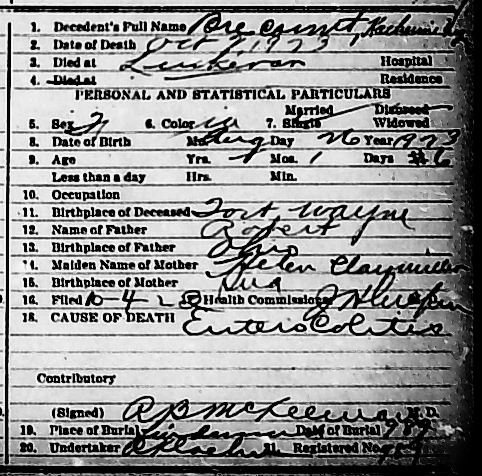 1. Decedent's Full Name
2. Date of Death Oct 2, 1923
3. Died at Lutheran Hospital
4. Died at Residence
PERSONAL AND STATISTICAL PARTICULARS
Married Divorced
5. Sex 6. Color W 7. Single Widowed
8. Date of Birth Mo. Aug Day 26 Year 1923
9. Age Yrs. Mos. 1 Days 6
Less than a day Hrs. Min.
10. Occupation
11. Birthplace of Deceased Fort Wayne
12. Name of Father Robert
13. Birthplace of Father Ohio
14. Maiden Name of Mother Helen
15. Birthplace of Mother Ind
16. Filed 10-4-23 Health Commissioner
18. CAUSE OF DEATH Entero Colitis
Contributory
(Signed) M.D.
19. Place of Burial Date of Burial
20. Undertaker 21. Registered No.